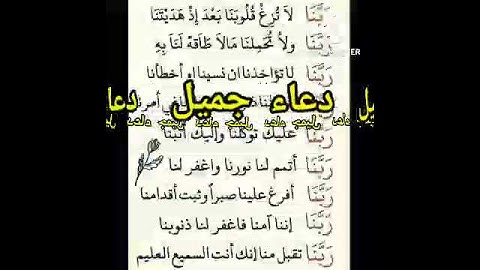 رَبَّنَا لَا تُزِغْ قُلُوبَنَا بَعْدَ إِذْ هَدَيْتَنَا
رَبَّنَا وَلَا تُحَمِّلْنَا مَالَا طَاقَةَ لَنَا بِهِ
رَبَّنَا لا تؤاخذنا ان نسينا او أخطأنا
دعاء جميل
رَبَّنَا عليك توكلنا وإليك أنبنا
رَبَّنَا أتمم لنا نورنا واغفر لنا
رَبَّنَا أفرغ علينا صبراً وثبت أقدامنا
رَبَّنَا إننا آمنا فاغفر لنا ذنوبنا
رَبَّنَا تقبل منا إنك أنت السميع العليم